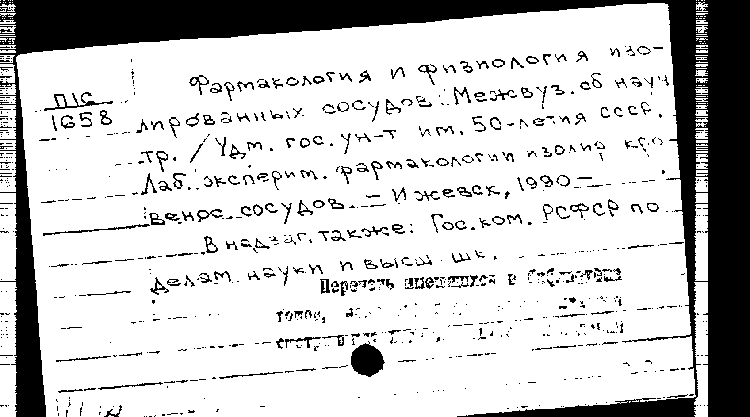 П16
1658
Фармакология и физиология изо-
лированных сосудов: Межвуз. сб науч
тр. / Удм. гос. ун-т им. 50-летия СССР.
Лаб. эксперим. фармакологии изолир кро-
венос. сосудов. – Ижевск, 1990 –
В надзаг. также: Гос. ком. РСФСР по
делам науки и высш. шк.
Перечень имеющихся в библиотеке
томов,